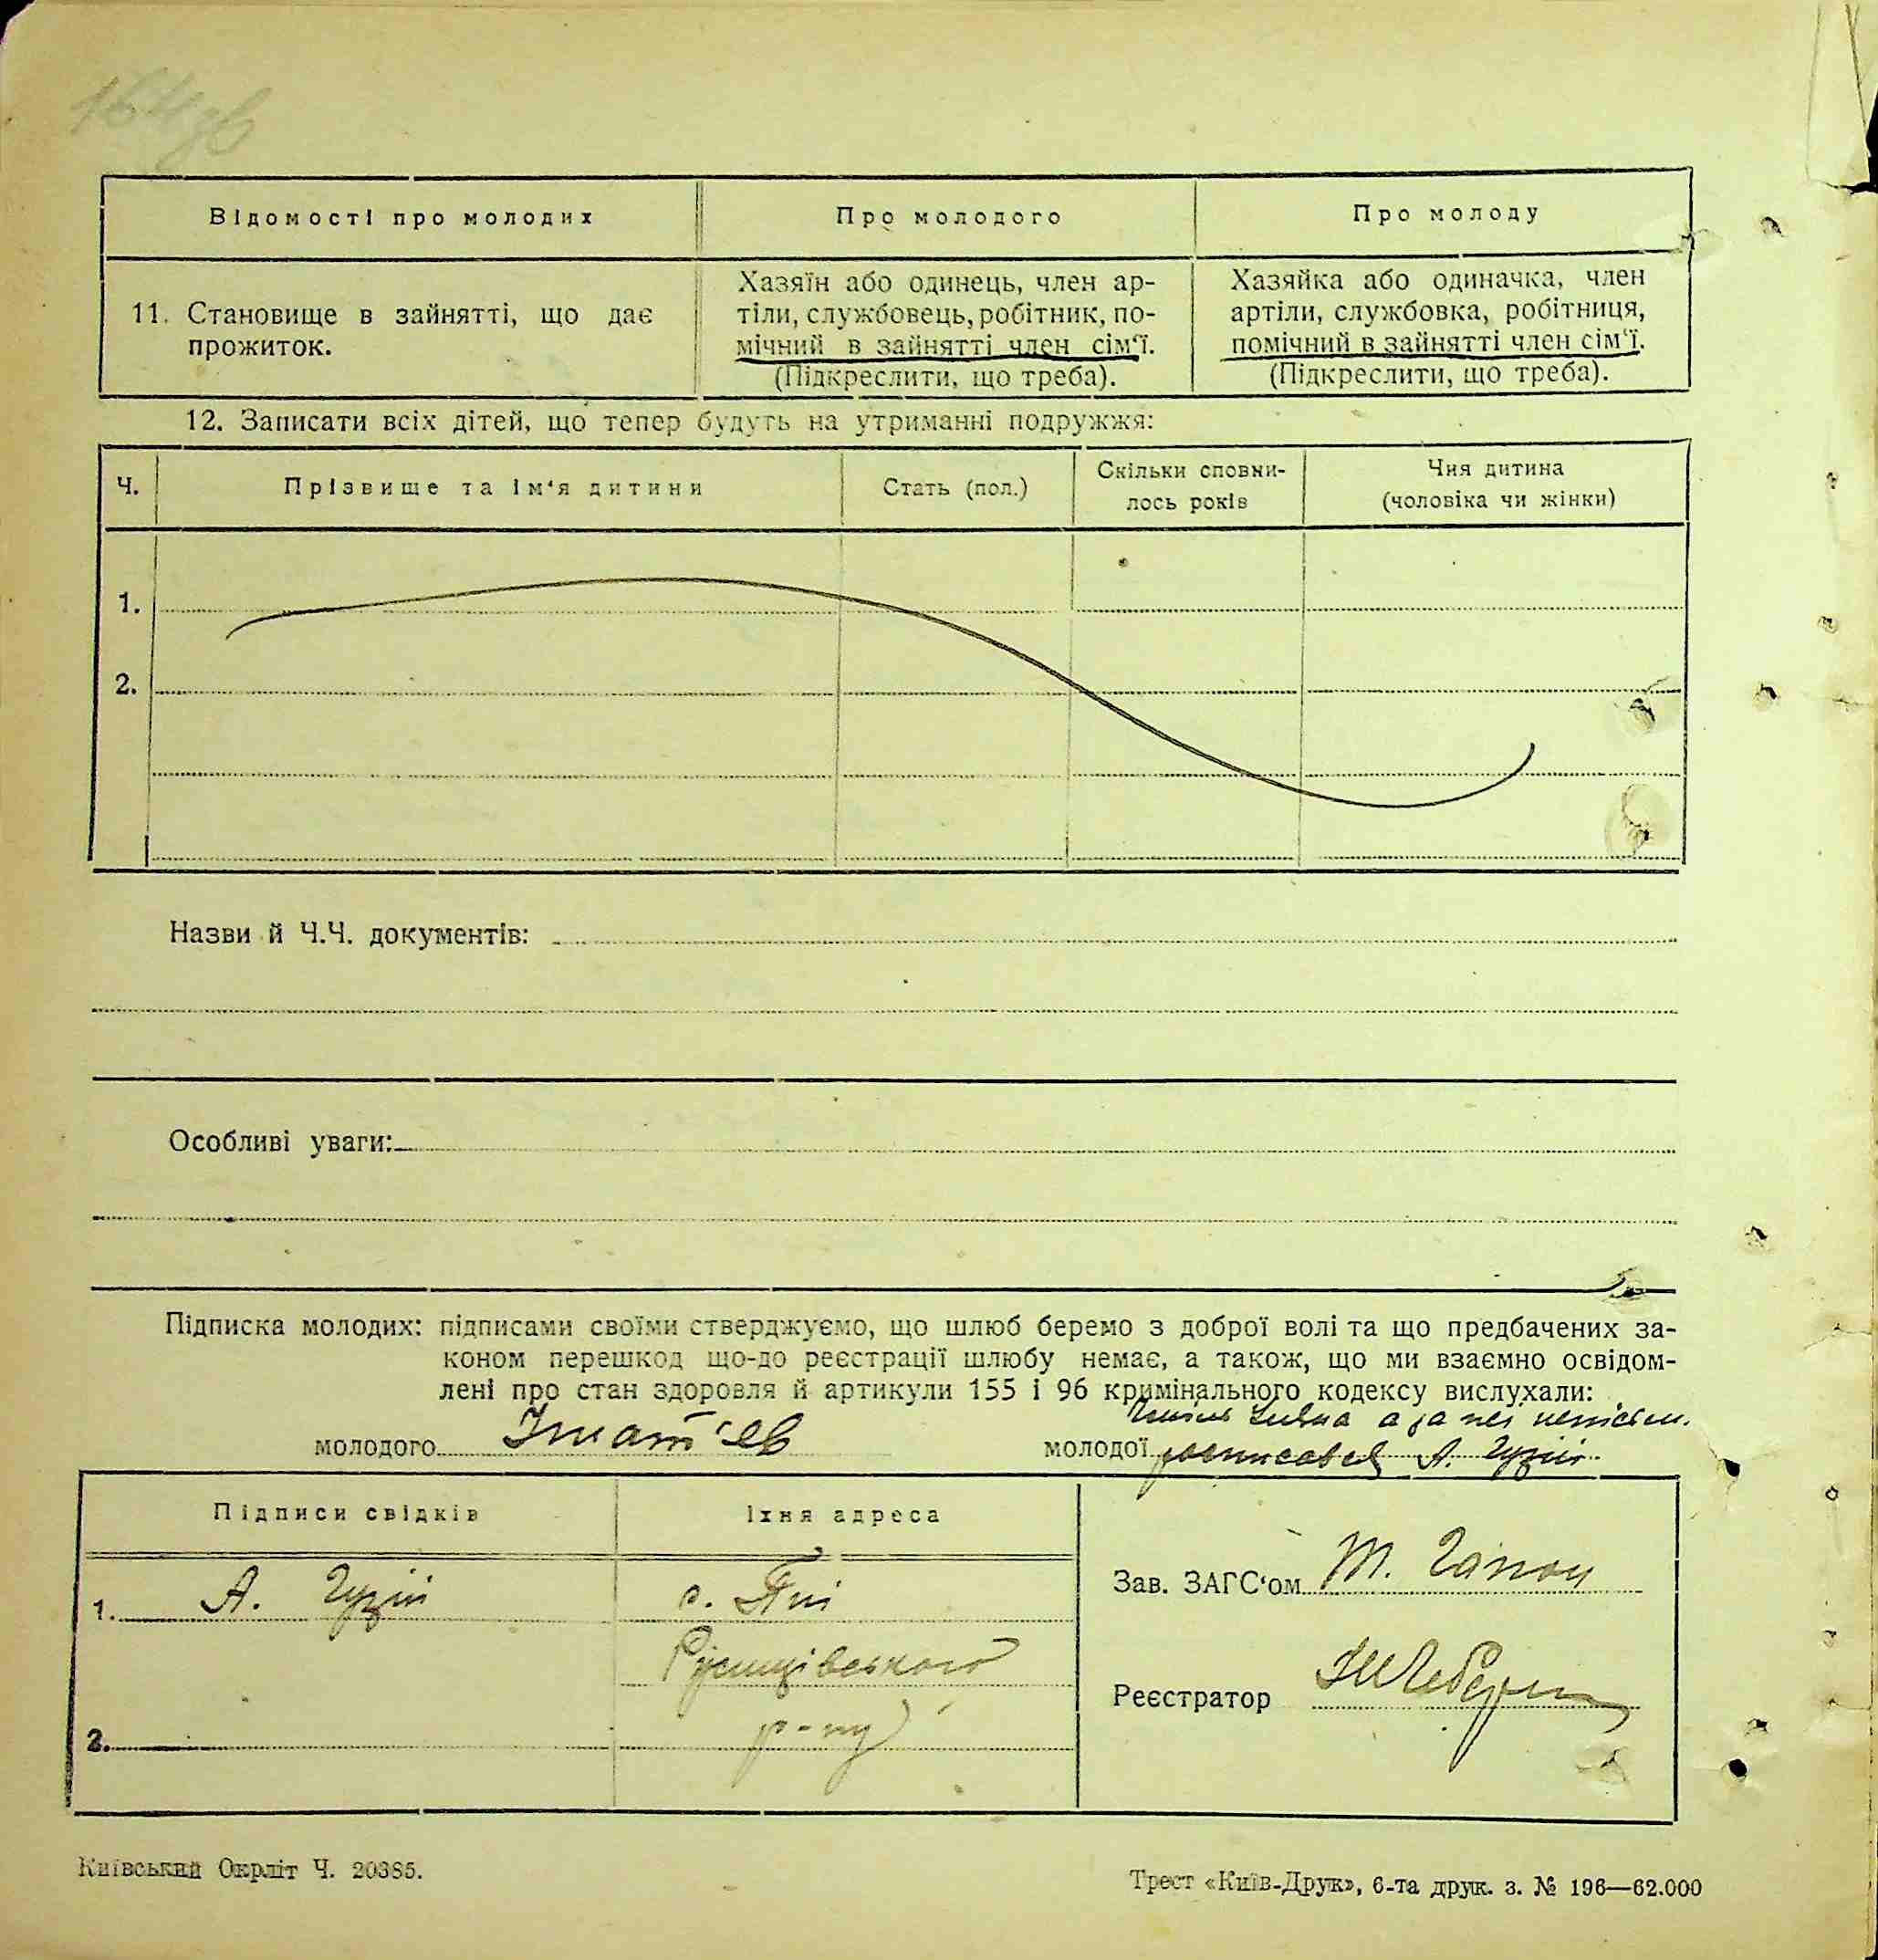 164зв
Відомості про молодих
Про молодого
Про молоду
11. Становище в зайнятті, що дає
прожиток.
Хазяїн або одинець, член ар-
тіли, службовець, робітник, по-
мічний в зайнятті член сім'ї.
(Підкреслити, що треба).
Хазяйка або одиначка, член
артіли, службовка, робітниця,
помічний в зайнятті член сім'ї.
(Підкреслити, що треба).
12. Записати всіх дітей, що тепер будуть на утриманні подружжя:
Ч.
Прізвище та ім'я дитини
Стать (пол.)
Скільки сповни-
лось років
Чия дитина
(чоловіка чи жінки)
1.
2.
Назви й Ч.Ч. документів:
Особливі уваги:
Підписка молодих: підписами своїми стверджуємо, що шлюб беремо з доброї волі та що предбачених за-
коном перешкод що-до реєстрації шлюбу немає, а також, що ми взаємно освідом-
лені про стан здоровля й артикули 155 і 96 кримінального кодексу вислухали:
а за неї
молодого Ігнатьєв
молодої росписався А. Гузій
Підписи свідків
Їхня адреса
1. А. Гузій
с.
р-ну
2.
Зав. ЗАГС'ом
Реєстратор
Київський Окрліт Ч. 20385.
Трест «Київ-Друк», 6-та друк. з. № 196—62.000